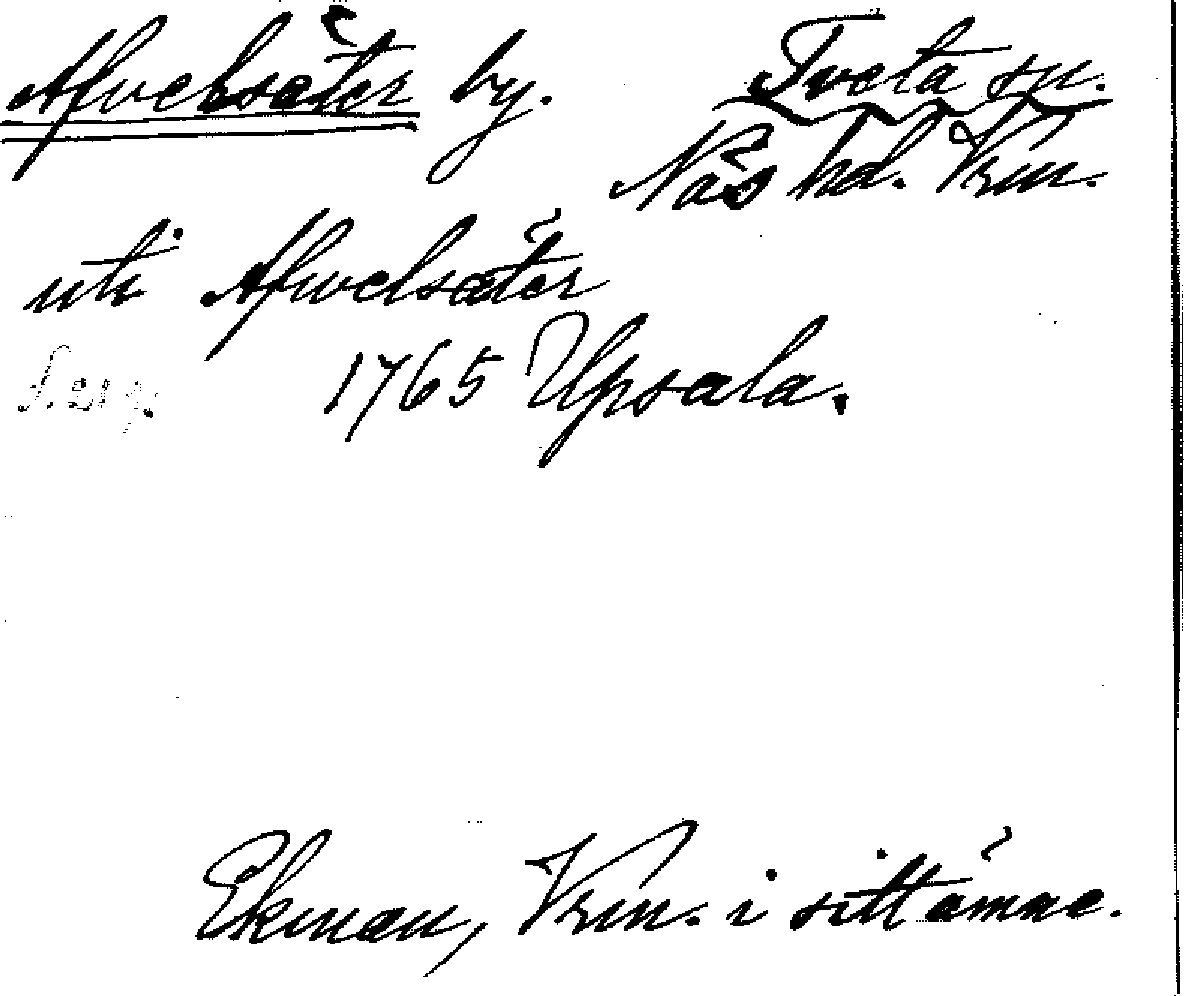 Afvelsäter by. Tveta sn.
Näs hd. Vrm.
uti Afwelsäter
1765 Upsala.
Ekman, Vrm. i sitt ämne.